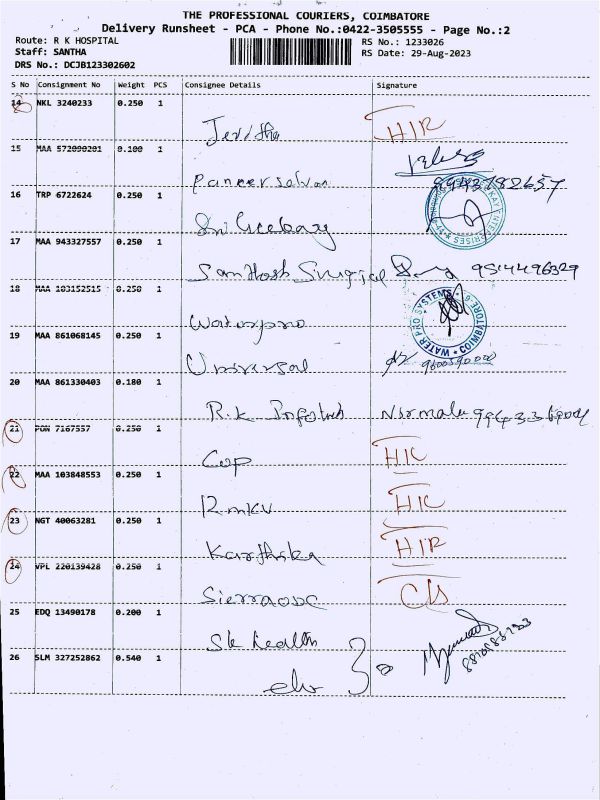 THE PROFESSIONAL COURIERS, COIMBATORE
Delivery Runsheet - PCA - Phone No.:0422-3505555 - Page No.:2
Route: R K HOSPITAL RS No.: 1233026
Staff: SANTHA RS Date: 29-Aug-2023
DRS No.: DCJB123302602
S No Consignment No Weight PCS Consignee Details Signature
14 NKL 3240233 0.250 1
HIR
15 MAA 572090201 0.100 1
Paneerselvan
16 TRP 6722624 0.250 1
17 MAA 943327557 0.250 1
Santhosh Surgical
18 MAA 103152515 0.250 1
Waterpro
WATER PRO SYSTEMS * COIMBATORE
19 MAA 861068145 0.250 1
Universal
20 MAA 861330403 0.180 1
R.K Infotech Nirmala
21 PON 7167557 0.250 1
Cop HIR
22 MAA 103848553 0.250 1
Rmkv HIR
23 NGT 40063281 0.250 1
Karthika HIR
24 VPL 220139428 0.250 1
C/S
25 EDQ 13490178 0.200 1
Sk health
26 SLM 327252862 0.540 1